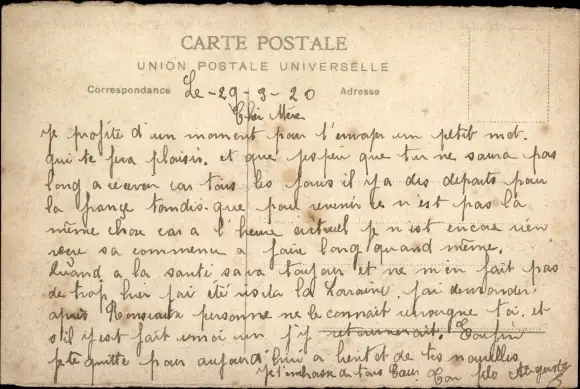 CARTE POSTALE
UNION POSTALE UNIVERSELLE
Correspondance Le - 29 - 3 - 20 Adresse
Cher Mère
Je profite d'un moment pour t'envoyer un petit mot.
qui te fera plaisir. et que j'espère que tu ne saura pas
long a recevoir car tous les jours il y a des departs pour
la françe tandis que pour revenir ce n'est pas la
même chose car a l'heure actuel je n'est encore rien
reçue sa commence a faire long quand même.
Quand a la santé sa va toujour et ne m'en fait pas
de trop hier j'ai été visiter la Loraine. j'ai demander
après personne ne le connait toi. et
s'il y est fait un j'y retournerait. Enfin
je te quitte pour aujourd'hui a bientot de tes nouvelles
Je t'embrasse de tous Cœur. Ton fils Auguste